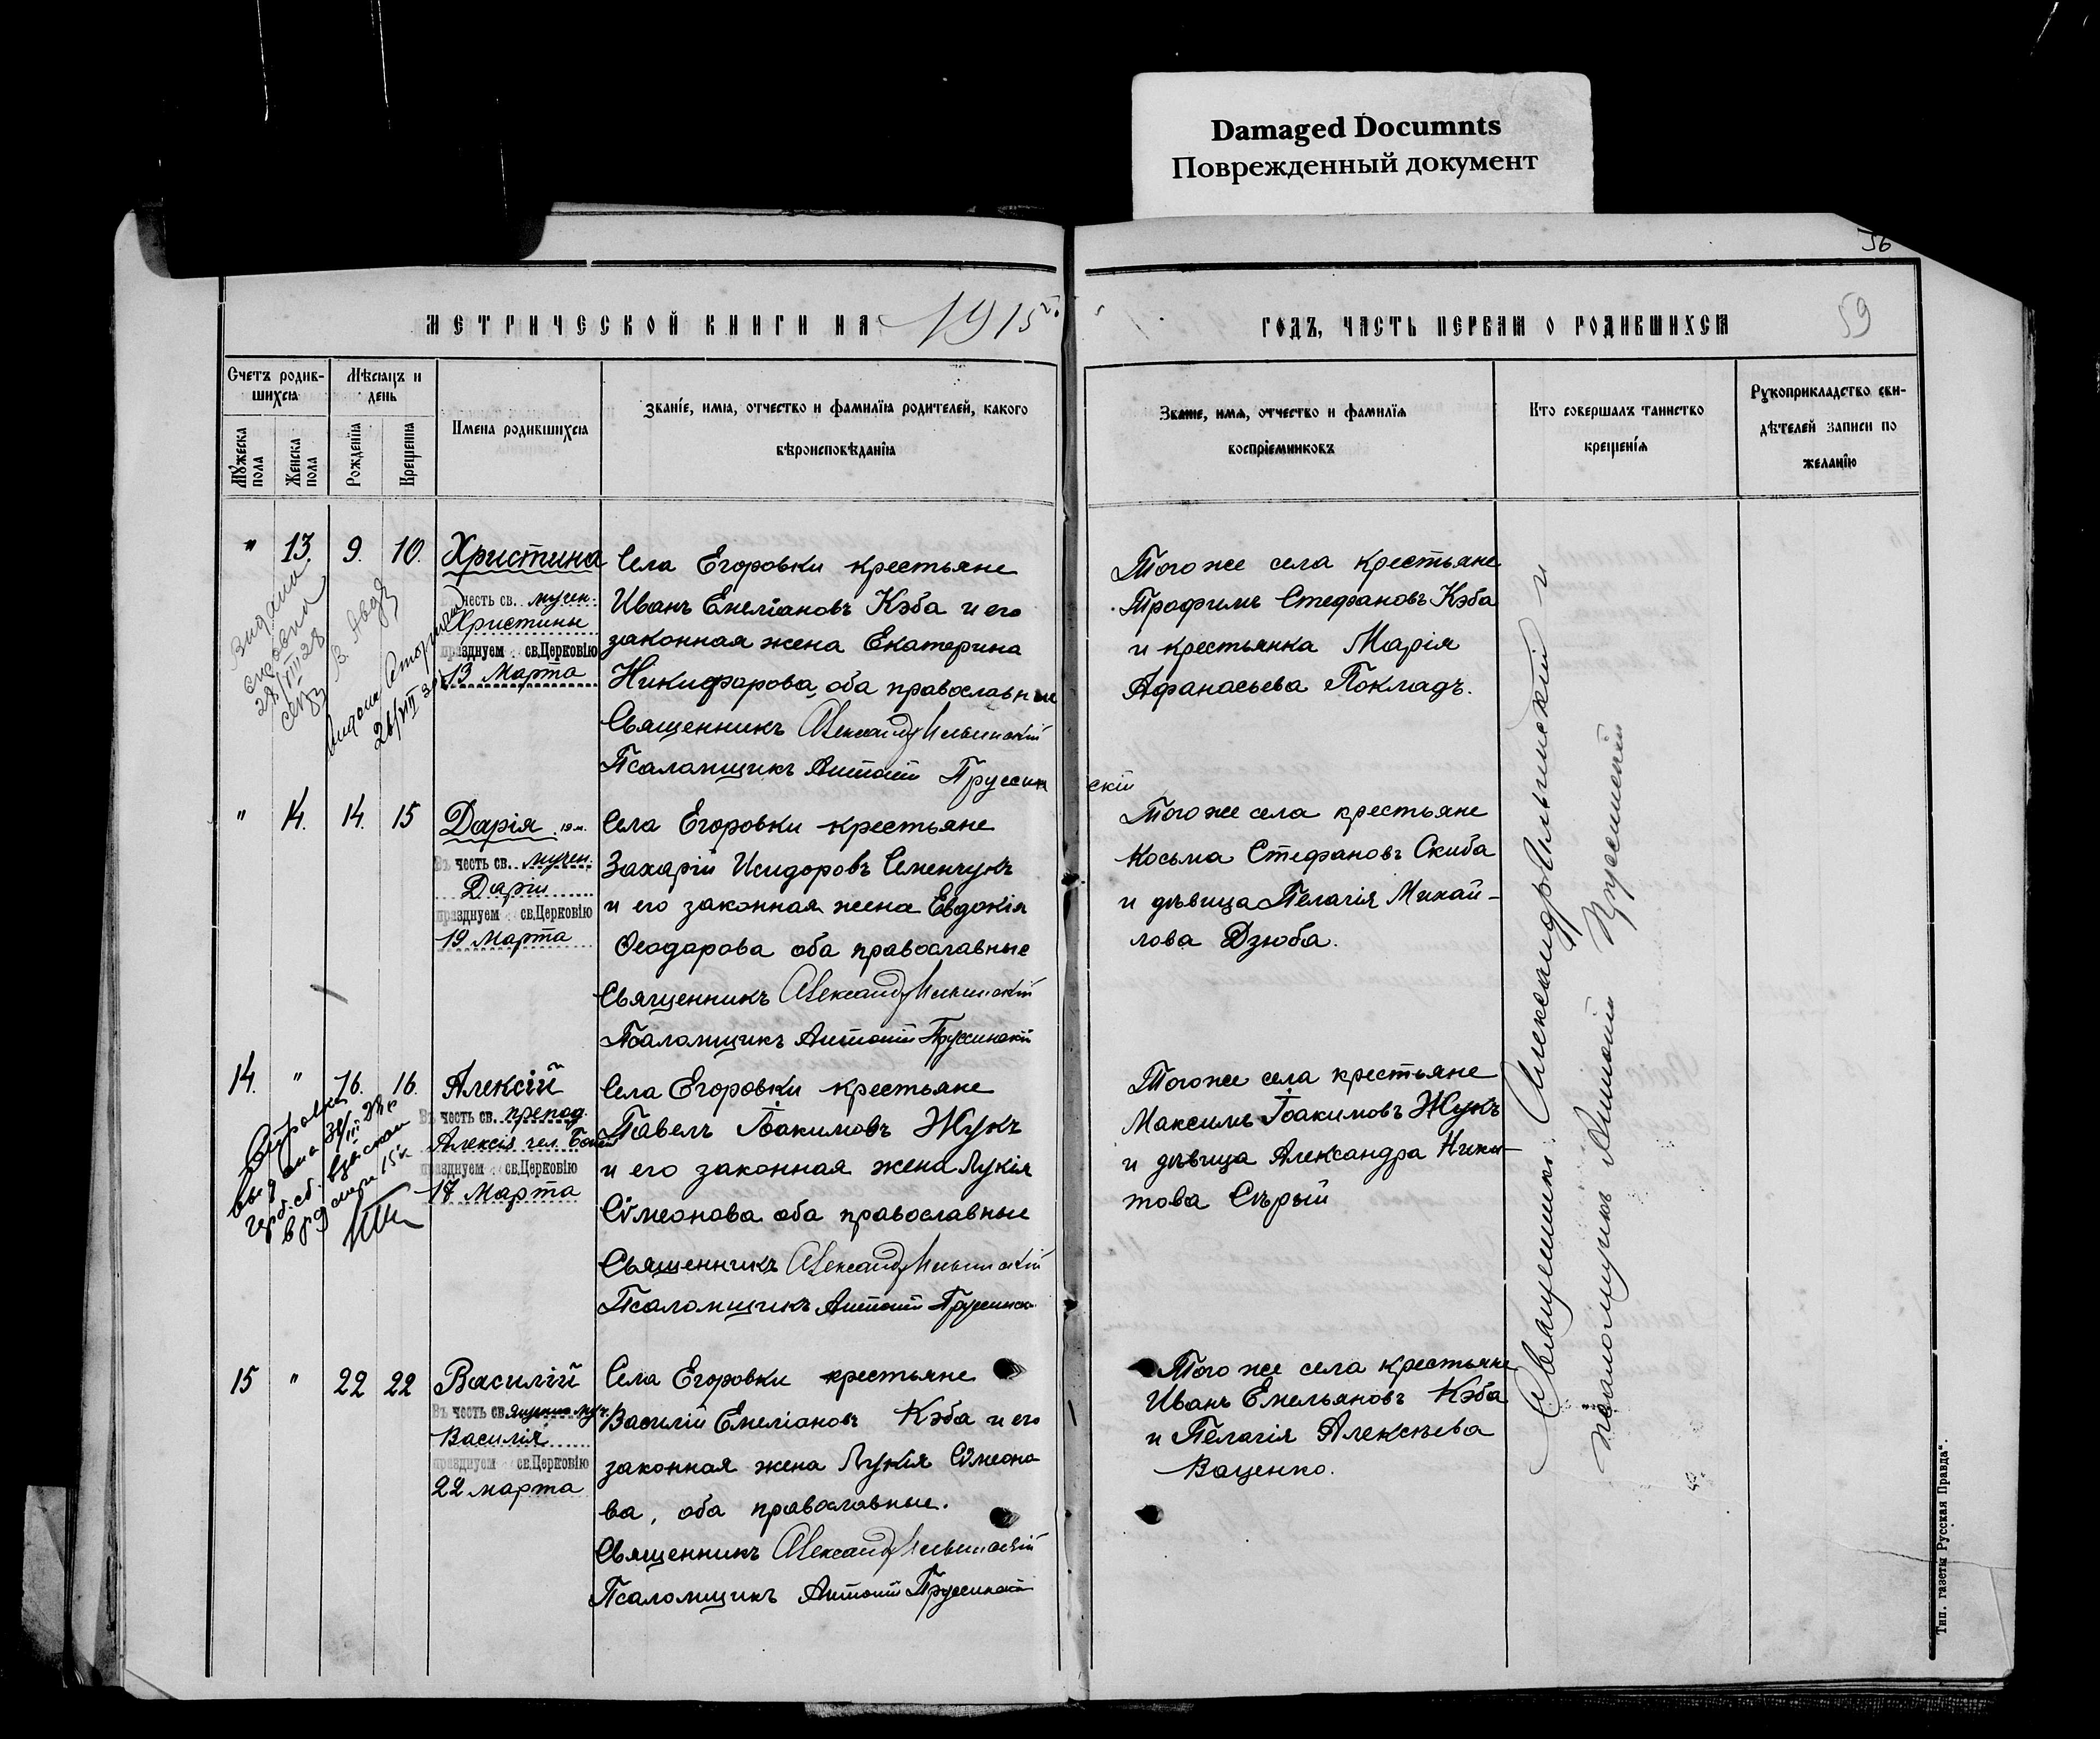 Damaged Documnts
Поврежденный документ
56
59
МЕТРИЧЕСКОЙ КНИГИ НА 1915
ГОДЪ, ЧАСТЬ ПЕРВАЯ О РОДИВШИХСЯ
Счетъ родив-
шихся
Мѣсяцъ и
день
Мужеска пола
Женска пола
Рожденія
Крещенія
Имена родившихся
Званіе, имя, отчество и фамилія родителей, какого
вѣроисповѣданія
Званіе, имя, отчество и фамилія
воспріемниковъ
Кто совершалъ таинство
крещенія
Рукоприкладство сви-
дѣтелей записи по
желанію
" 13. 9. 10.
Христина
Въ честь св. мучен.
Христины
празднуем св. Церковію
13 Марта
Села Егоровки крестьяне
Иванъ Емеліановъ Кэба и его
законная жена Екатерина
Никифорова, оба православные
Священникъ Александръ Ильинскій
Псаломщикъ Антоній Пруссинскій
Того же села крестьяне
Трофимъ Стефановъ Кэба
и крестьянка Марія
Афанасьева Покладъ.
Видана
28/VIII 28
26/VIII 3
" 14. 14. 15
Дарія 19 м.
Въ честь св. мучен.
Даріи
празднуем св. Церковію
19 Марта
Села Егоровки крестьяне
Захарій Исидоровъ Семенчукъ
и его законная жена Евдокія
Ѳеодорова оба православные
Священникъ Александръ Ильинскій
Псаломщикъ Антоній Пруссинскій
Того же села крестьяне
Косьма Стефановъ Скиба
и дѣвица Пелагія Михай-
лова Дзюба.
14. " 16. 16.
Алексій
Въ честь св. препод.
Алексія чел. Божія
празднуем св. Церковію
17 Марта
Села Егоровки крестьяне
Павелъ Іоакимовъ Жукъ
и его законная жена Лукія
Сѵмеонова оба православные
Священникъ Александръ Ильинскій
Псаломщикъ Антоній Пруссинскій
Того же села крестьяне
Максимъ Іоакимовъ Жукъ
и дѣвица Александра Ники-
това Сѣрый
выдана
герб. сб. взыскан
15 " 22 22
Василій
Въ честь св. священно муч.
Василія
празднуем св. Церковію
22 марта
Села Егоровки крестьяне
Василій Емеліановъ Кэба и его
законная жена Лукія Сѵмеоно
ва, оба православные.
Священникъ Александръ Ильинскій
Псаломщикъ Антоній Пруссинскій
Того же села крестьяне
Иванъ Емельяновъ Кэба
и Пелагія Алексѣева
Ваценко.
Священникъ Александръ Ильинскій и
псаломщикъ Антоній Пруссинскій
Тип. газеты Русская Правда".